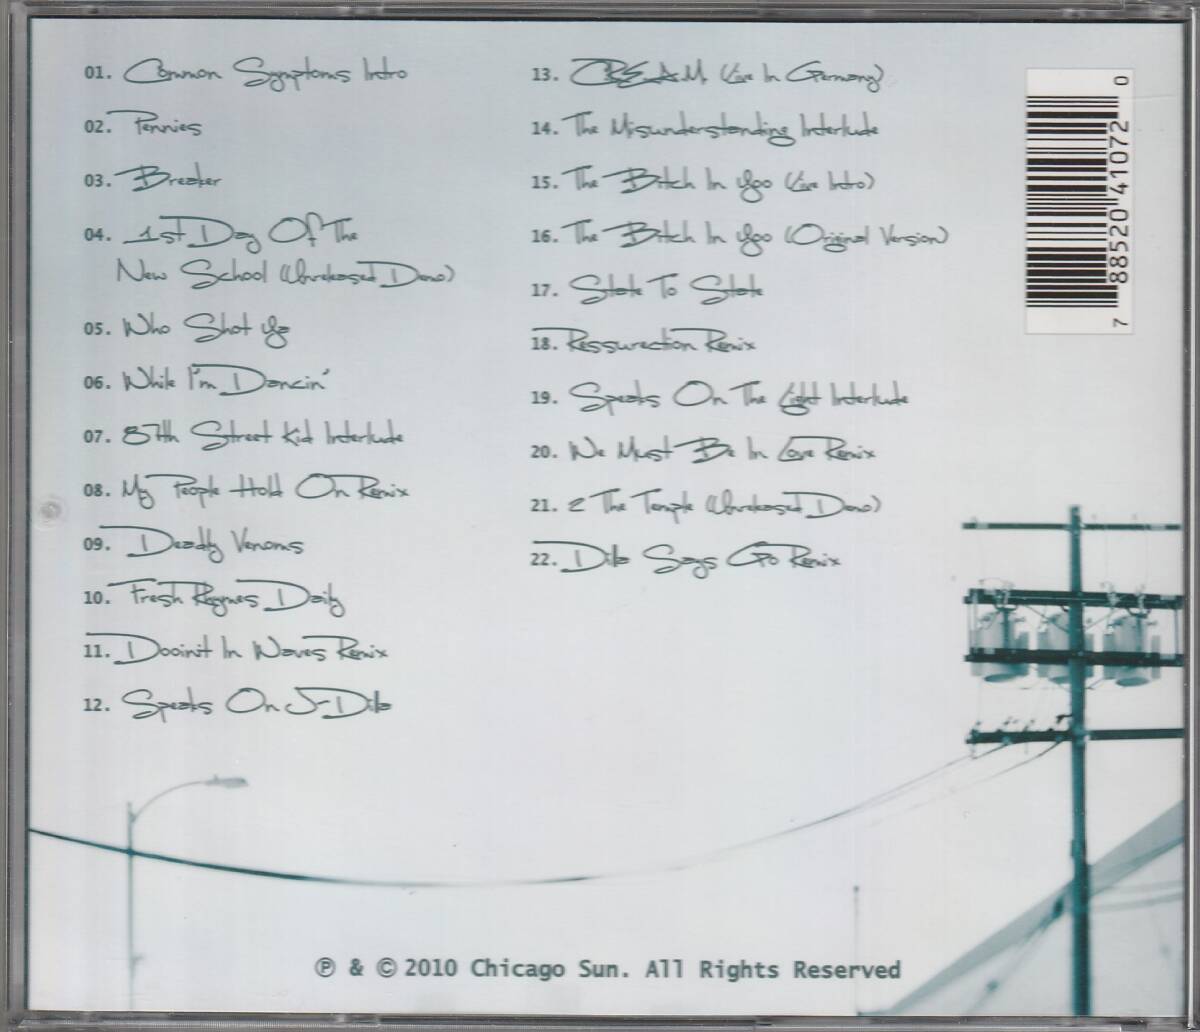 01. Common Symptoms Intro
02. Pennies
03. Breaker
04. 1st Day Of The
New School (Unreleased Demo)
05. Who Shot Ya
06. While I'm Dancin'
07. 87th Street Kid Interlude
08. My People Hold On Remix
09. Deadly Venoms
10. Fresh Rhymes Daily
11. Dooinit In Waves Remix
12. Speaks On J-Dilla
13. C.R.E.A.M. (Live In Germany)
14. The Misunderstanding Interlude
15. The Bitch In Yoo (Live Intro)
16. The Bitch In Yoo (Original Version)
17. State To State
18. Ressurection Remix
19. Speaks On The Light Interlude
20. We Must Be In Love Remix
21. 2 The Temple (Unreleased Demo)
22. Dilla Says Go Remix
7 88520 41072 0
℗ & © 2010 Chicago Sun. All Rights Reserved